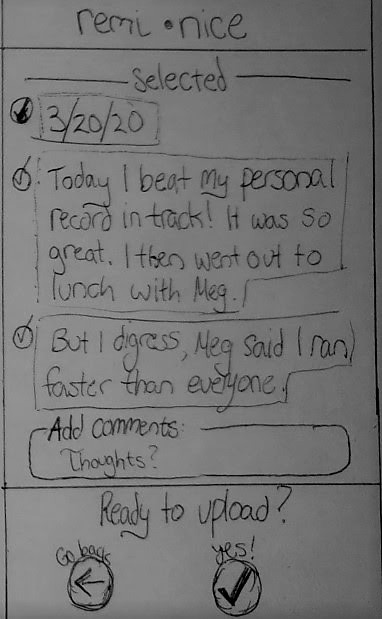 remi • nice
Selected
3/20/20
Today I beat my personal
record in track! It was so
great. I then went out to
lunch with Meg.
But I digress, Meg said I ran
faster than everyone.
Add comments:
Thoughts?
Ready to upload?
Go back
yes!